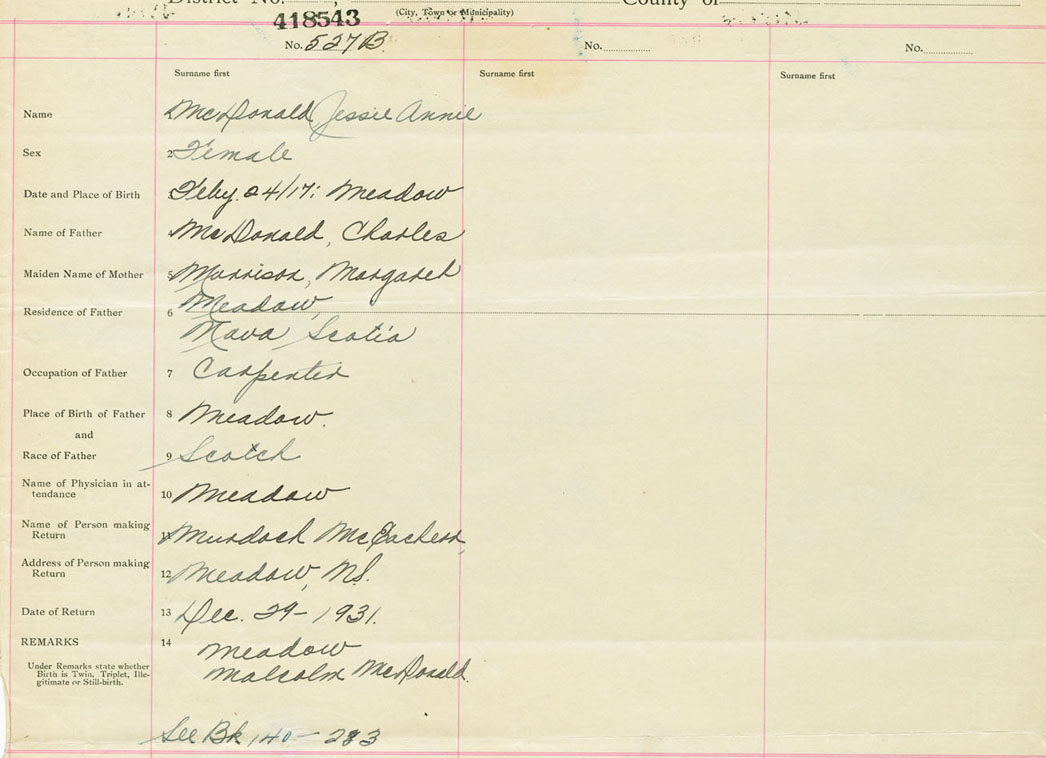 District No.
County of
418543
(City, Town or Municipality)
No. 527B. No. No.
Surname first Surname first Surname first
Name McDonald, Jessie Annie
Sex 2 Female
Date and Place of Birth 3 Feby. 24/17: Meadow
Name of Father 4 McDonald, Charles
Maiden Name of Mother 5 Morrison, Margaret
Residence of Father 6 Meadow,
Nova Scotia
Occupation of Father 7 Carpenter
Place of Birth of Father 8 Meadow.
and
Race of Father 9 Scotch
Name of Physician in at-
tendance 10 Meadow
Name of Person making
Return 11 Murdoch McEachern,
Address of Person making
Return 12 Meadow, N.S.
Date of Return 13 Dec. 29-1931.
REMARKS 14 Meadow
Under Remarks state whether
Birth is Twin, Triplet, Ille-
gitimate or Still-birth.
Malcolm McDonald.
See Bk 140-233